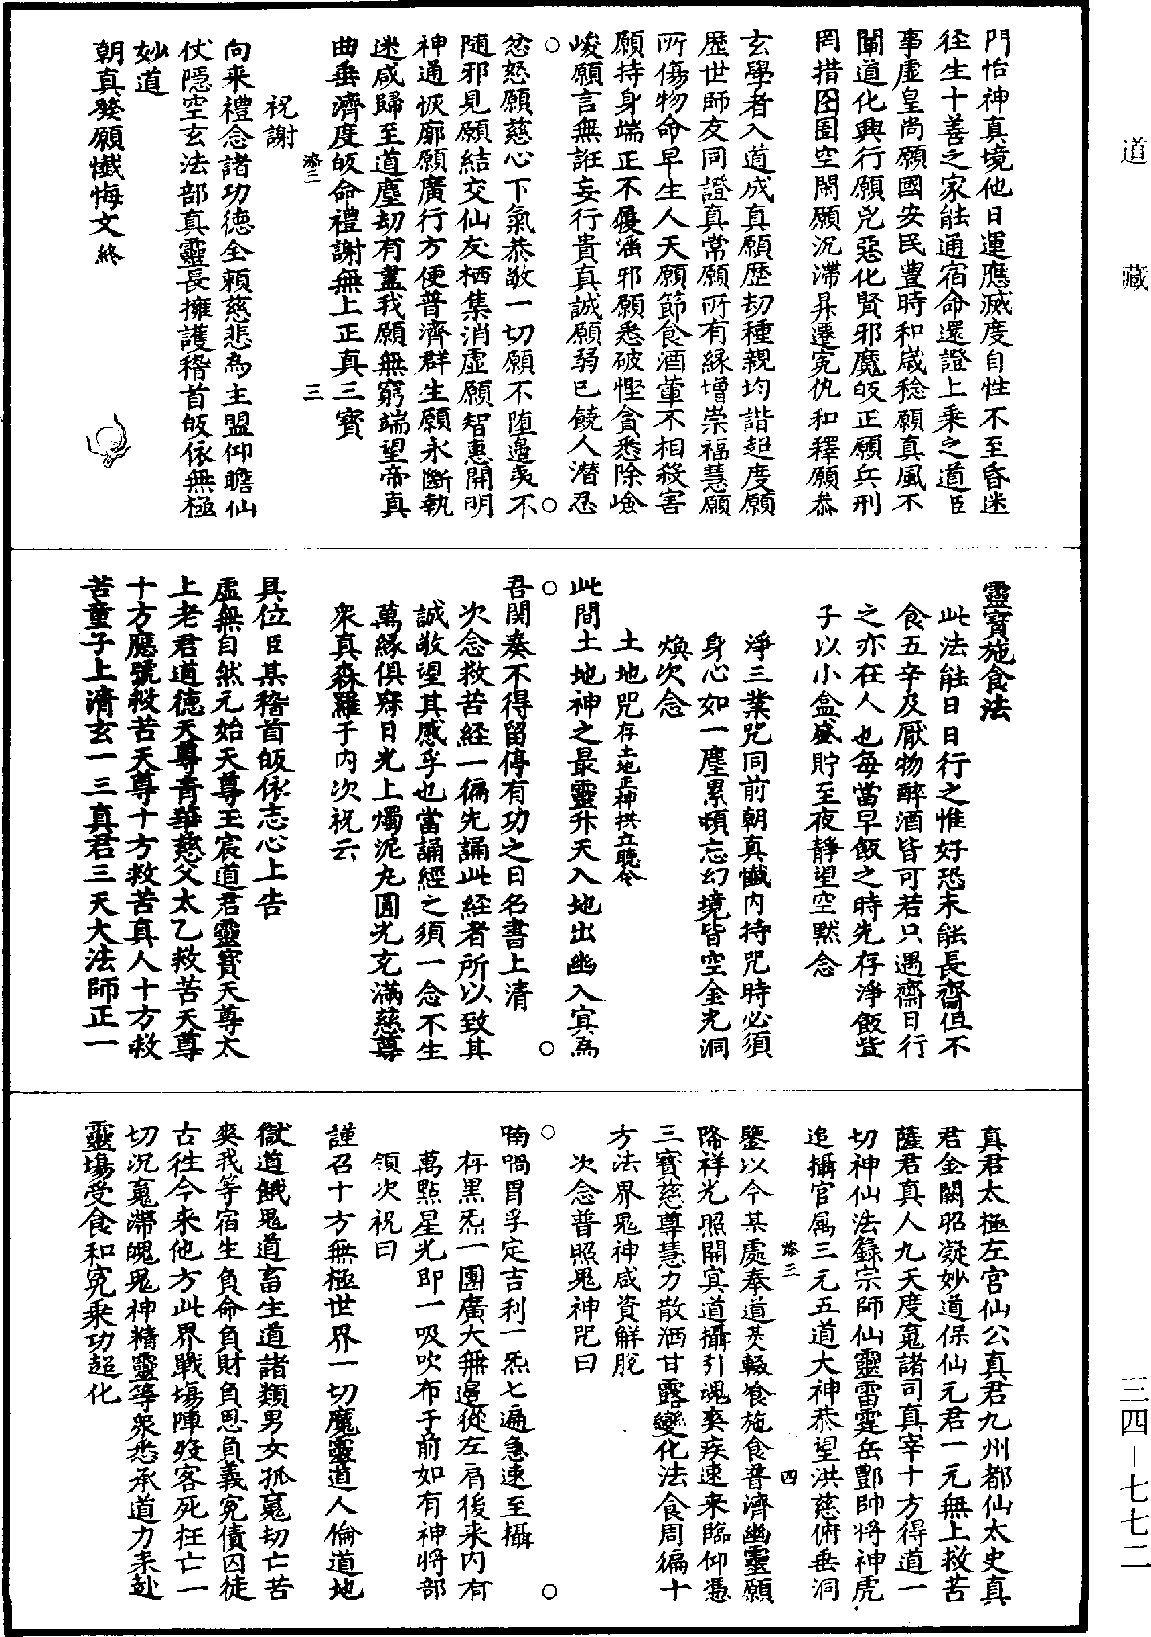 道藏
門怡神真境他日運應滅度自性不至昏迷
徑生十善之家能通宿命還證上乘之道臣
事虛皇尚願國安民豊時和歲稔願真風不
闡道化興行願兇惡化賢邪魔皈正願兵刑
罔措囹圄空閑願沉滯昇遷寃仇和釋願恭
玄學者入道成真願歷劫種親均諧超度願
歷世師友同證真常願所有緣增崇福慧願
所傷物命早生人天願節食酒葷不相殺害
願持身端正不履滛邪願悉破慳貪悉除嶮
峻願言無誑妄行貴真誠願弱已饒人潛忍
忿怒願慈心下氣恭敬一切願不堕邊夷不
随邪見願結交仙友栖集消虛願智惠開明
神通恢廓願廣行方便普濟群生願永斷執
迷咸歸至道塵劫有盡我願無窮端望帝真
曲垂濟度皈命禮謝無上正真三寳
三
祝謝
向来禮念諸功德全賴慈悲為主盟仰瞻仙
仗隱空玄法部真靈長擁護稽首皈依無極
妙道
朝真發願懺悔文終
靈寳施食法
此法能日日行之惟好恐未能長齋但不
食五辛及厭物醉酒皆可若只遇齋日行
之亦在人也每當早飯之時先存淨飯些
子以小盒盛貯至夜靜望空默念
淨三業咒同前朝真懺内持咒時必須
身心如一塵累頓忘幻境皆空金光洞
煥次念
土地咒存土地正神拱立聽令
此間土地神之最靈升天入地出幽入㝠為
吾関奏不得留停有功之日名書上清
次念救苦経一徧先誦此経者所以致其
誠敬望其感孚也當誦經之須一念不生
萬緣俱寐日光上燭泥丸圓光充滿慈尊
衆真森羅于内次祝云
具位臣某稽首皈依志心上告
虛無自然元始天尊玉宸道君靈寳天尊太
上老君道德天尊青華慈父太乙救苦天尊
十方應號救苦天尊十方救苦真人十方救
苦童子上清玄一三真君三天大法師正一
真君太極左宮仙公真君九州都仙太史真
君金闕昭凝妙道保仙元君一元無上救苦
薩君真人九天度䰟諸司真宰十方得道一
切神仙法籙宗師仙靈雷霆岳酆帥將神虎
追攝官属三元五道大神恭望洪慈俯垂洞
鑒以今某處奉道某輟飡施食普濟幽靈願
四
降祥光照開㝠道攝引魂爽疾速来臨仰憑
三寳慈尊慧力散洒甘露變化法食周徧十
方法界鬼神咸資解脫
次念普照鬼神咒曰
喃㗻胃孚定吉利一炁七遍急速至攝
存黒炁一團廣大無邊從左肩後来内有
萬點星光即一吸吹布于前如有神將部
領次祝曰
謹召十方無極世界一切魔靈道人倫道地
獄道餓鬼道畜生道諸類男女孤䰟劫亡苦
爽我等宿生負命負財負恩負義寃債囚徒
古徃今来他方此界戰塲陣歿客死枉亡一
切沉䰟滯魄鬼神精靈等衆悉承道力来赴
靈塲受食和寃乘功超化
三四—七七二